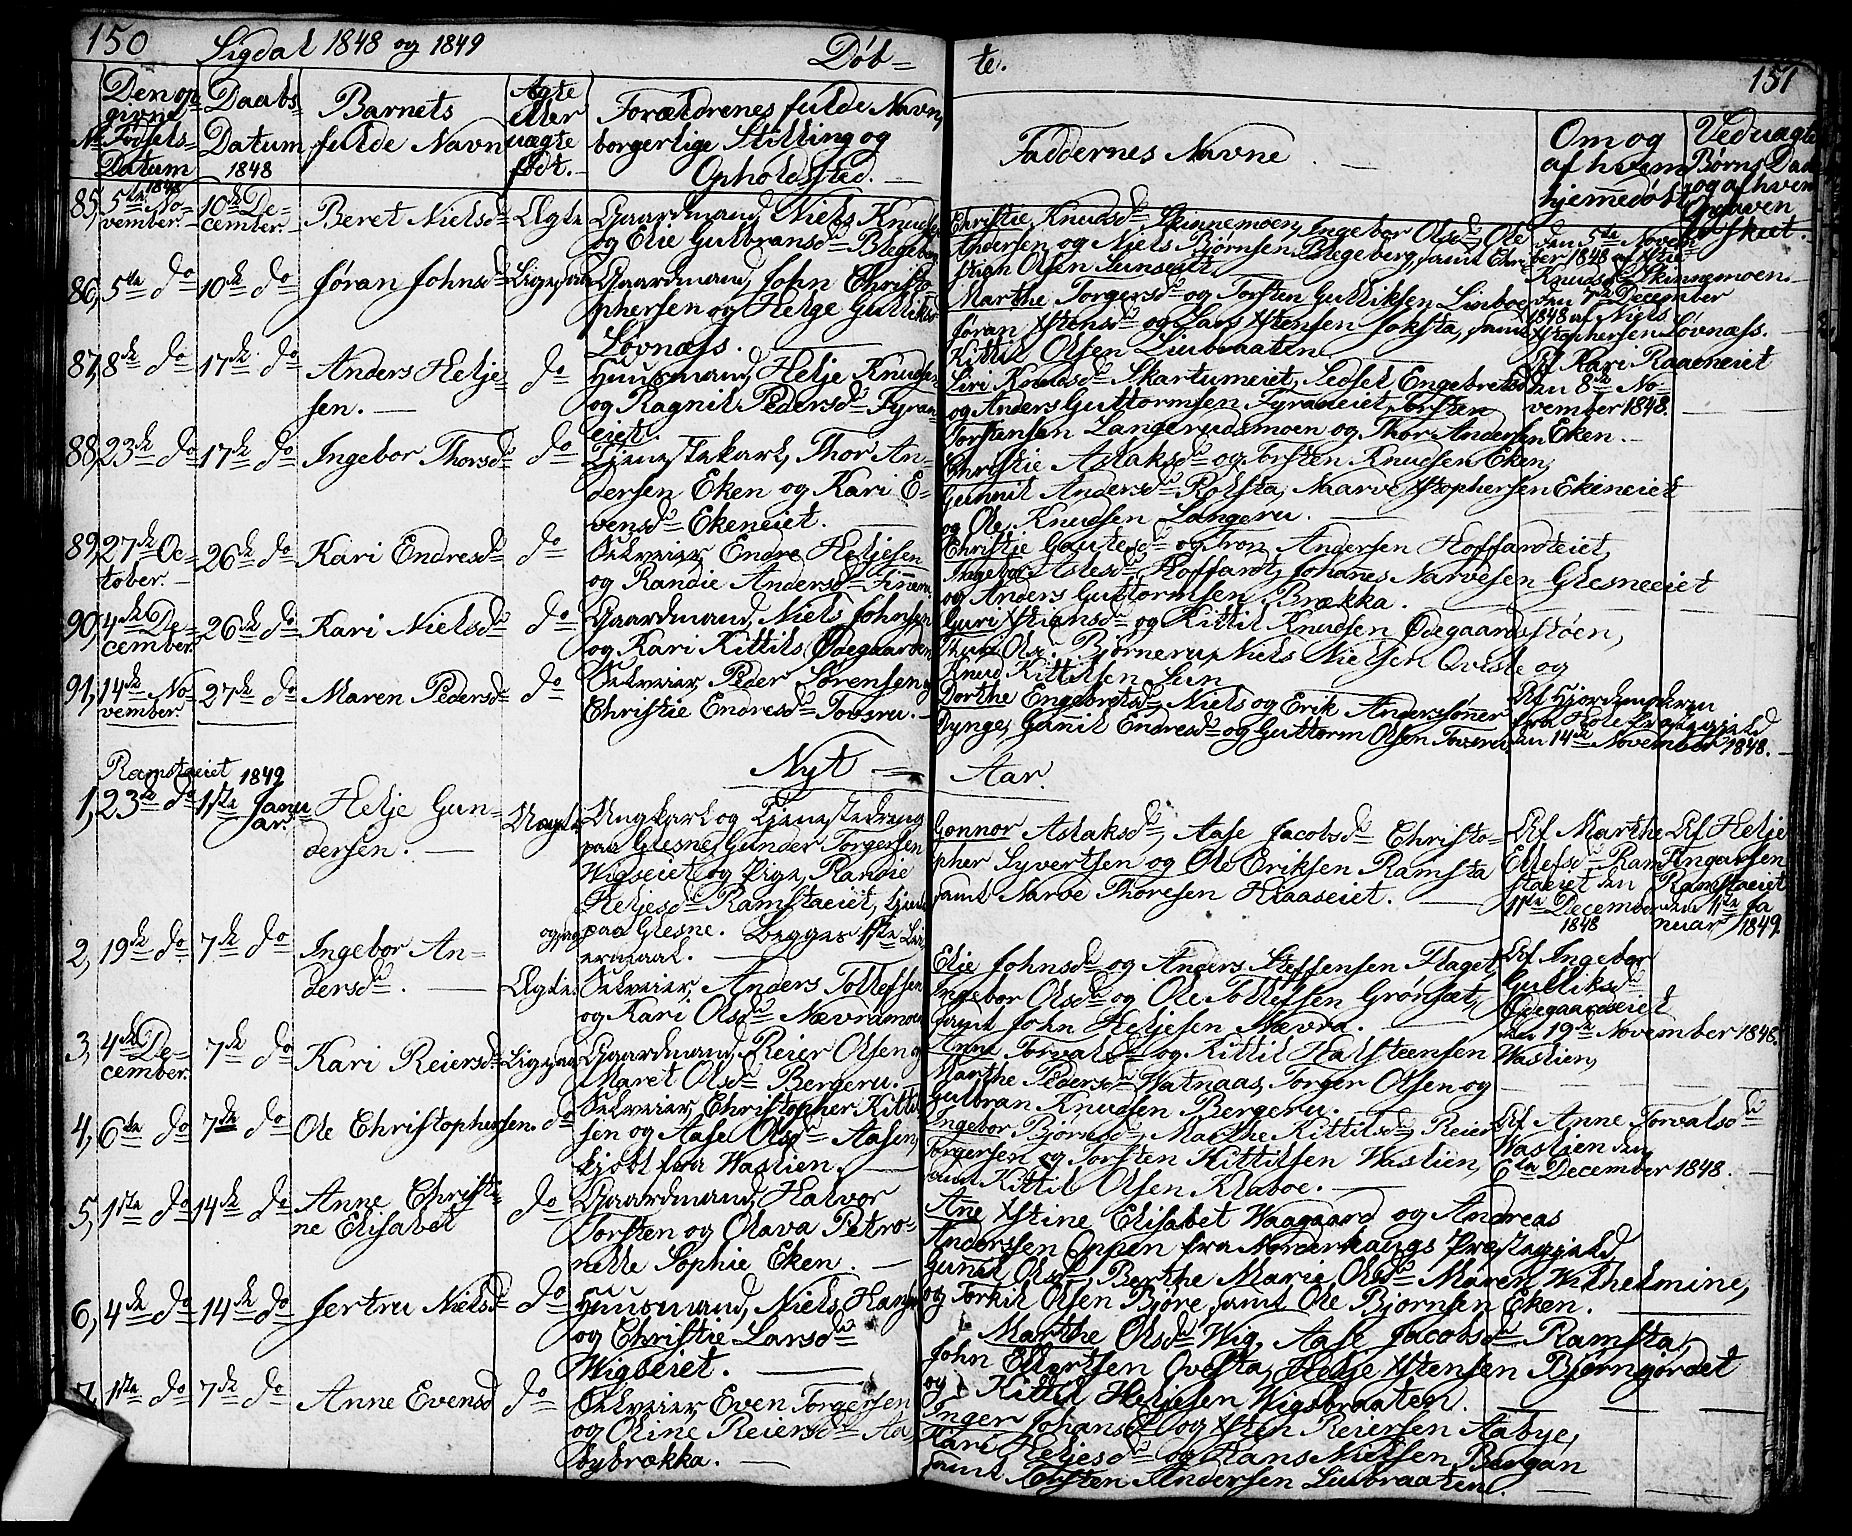 150 Sigdal 1848 og 1849 Døb= te. 151
No
Den op=
givne
Fødsels=
Datum
1848
Daabs
Datum
1848
Barnets
fulde Navn
Ægte
eller
uægte
født.
Forældrenes fulde Navn,
borgerlige Stilling og
Opholdssted.
Faddernes Navne
Om og
af hvem
hjemmedøbt
Ved uægte
Børns Daab
og af hvem
85, 5te No=
vember.
10de De=
cember.
Beret Nielsd
Ægte
Gaardmand, Niels Knudsen
og Elie Gulbransd Blegeberg
Christie Knudsd Skinnemoen, Ingebor Olsd, Ole
Andersen og Niels Bjørnsen Blegeberg, samt Chri=
stian Olsen
den 5te Novem
ber 1848 af
Knudsd Skinnemoen.
86, 5te do
10de do
Jøran Johnsd
Ligesaa
Gaardmand, John Christo=
phersen og Helge Gulliksd
Løvnæss.
Marthe Torgersd og Torsten Gulliksen Linboe
Jøran Xstensd og Lars Xstensen Joksta, samt
Kittil Olsen Liubraaten
den 7de December
1848 af Niels
Xstophersen Løvnæss.
87, 8de do
17de do
Anders Helje=
sen.
do
Huusmand, Helje Knudsen
og Ragnil Pedersd Fyran=
eiet.
Siri Knudsd Skartumeiet, Sidsel Engebretsd
og Anders Guttormsen Fyraneiet, Torsten
Torstensen Langerudsmoen og Thor Andersen Eken.
Af Kari Raaeneiet
den 8de No=
vember 1848.
88, 23de do
17de do
Ingebor Thorsd
do
Tjenestekarl, Thor An=
dersen Eken og Kari E=
vensd Ekeneiet.
Christie Aslaksd og Torsten Knudsen Eken,
Gunnil Andersd Rolsta, Naarve Xstophersen Ekeneiet
og Ole Knudsen Langeru.
89, 27de Oc=
tober.
26de do
Kari Endresd
do
Selveier, Endre Heljesen
og Randie Andersd
Christie Gautesd og Tron Andersen Hoffardteiet,
Ingebor Aslesd Hoffardt, Johannes Narvesen Glesneeiet
og Anders Guttormsen Brækka.
90, 4de De=
cember.
26de do
Kari Nielsd
do
Gaardmand, Niels Johnsen
og Kari Kittils Ødegaarden
Guri Xstiansd og Kittil Knudsen Ødegaardsstøen,
Olsd. Bjørneru, Niels Nielsen Qviste og
Knud Kittilsen
91, 14de No=
vember.
27de do
Maren Pedersd
do
Selveier Peder Sørensen og
Christie Endresd Tovsru.
Dorthe Engebretsd, Niels og Erik Anderssønner
Dynge, Gunnil Endresd og Guttorm Olsen
Af Hjordemoderen
fra Hole Præstegjeld
den 14de November 1848.
Nyt = Aar.
Ramstaeiet
1849
1, 23de do
1ste Janu
ar.
Helje Gun=
dersen.
Uægte
Ungkarl og Tjenestedreng
paa Glesne, Gunder Torgersen
Wigseiet og Pige, Randie
Heljesd Ramstaeiet, tjen
ogsaa paa Glesne. Begges 1ste Lei=
ermaal.
Gonnor Aslaksd, Aase Jacobsd Christo=
pher Syvertsen og Ole Eriksen Ramsta
samt Narve Thoresen Hraaseiet.
Af Marthe
Ellefsd Ram
staeiet den
11te December
1848
Af Helje
Ramstaeiet
den 1ste Ja
nuar 1849.
2, 19de do
7de do
Ingebor An=
dersd.
Ægte
Selveier, Anders Tollefsen
og Kari Olsd Nævramoen
Elie Johnsd og Anders Steffensen Flaget,
Ingebor Olsd og Ole Tollefsen Grønsæt,
samt John Heljesen Nævra.
Af Ingebor
Gulliksd
Ødegaardseiet
den 19de November 1848.
3, 4de De=
cember.
7de do
Kari Reiersd
Ligesaa
Gaardmand, Reier Olsen og
Maret Olsd Bergeru.
Anne Torvalsd og Kittil Halsteensen Waslien,
Marthe Pedersd Watnaas, Torger Olsen og
Gulbran Knudsen Bergeru.
4, 6te do
7de do
Ole Christophersen.
do
Selveier, Christopher Kittil
sen og Aase Olsd Aasen,
kjøbt fra Waslien.
Ingebor Bjørnsd, Marthe Kittilsd, Reier
Torgersen og Torsten Kittilsen Waslien,
samt Kittil Olsen Klaboe.
Af Anne Torvalsd
Waslien den
6te December 1848.
5, 1ste do
14de do
Anne Christi=
ne Elisabet
do
Gaardmand, Halvor
Torsten og Olava Petro=
nelle Sophie Eken.
Ane Xstine Elisabet Waagaard og Andreas
Anderssen Oppen fra Norderhaugs Præstegjeld,
Gunil Olsd, Berthe Marie Olsd Maren Wilhelmine,
og Torkil Olsen Bjøre, samt Ole Bjørnsen Eken.
6, 4de do
14de do
Jertru Nielsd
do
Huusmand, Niels Hans
og Christie Larsd
Wigseiet.
Marthe Olsd Wig, Aase Jacobsd Ramsta,
John Ellertsen Qvista, Helje Xstensen Bjørngjordet
og Kittil Heljesen Wigsbraaten.
7, 1ste do
7de do
Anne Evensd
do
Selveier Even Torgersen
og Oline Reiersd Aa=
bybrækka.
Inger Johansd og Xsten Reiersen Aabye,
Kari Heljesd og Hans Nielsen Bergan
samt Torsten Andersen Liubraaten.